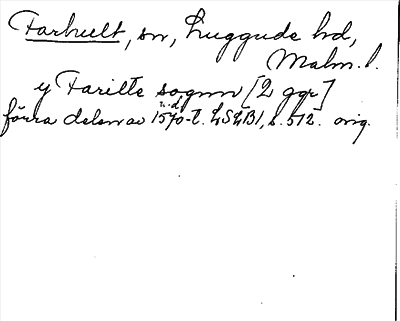 Farhult, sn, Luggude hd,
Malm. l.
y Farilte sognn [2 ggr]
n.d.
förra delen av 1570-t. LSLB1, s. 512. orig.